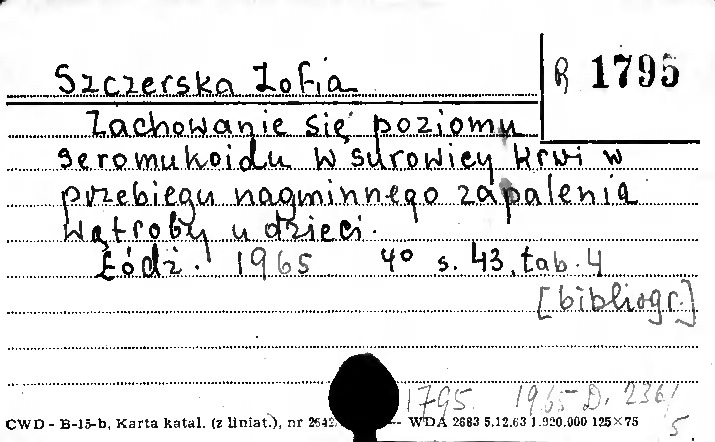 Szczerska Zofia
R 1795
Zachowanie się poziomu
seromukoidu w surowicy krwi w
przebiegu nagminnego zapalenia
wątroby u dzieci.
Łódź. 1965 4° s. 43, tab. 4
[bibliogr.]
1795. 1965 D. 236/
5
CWD - B-15-b, Karta katal. (z liniat.), nr 2542 — WDA 2683 5.12.63 1.920.000 125×75